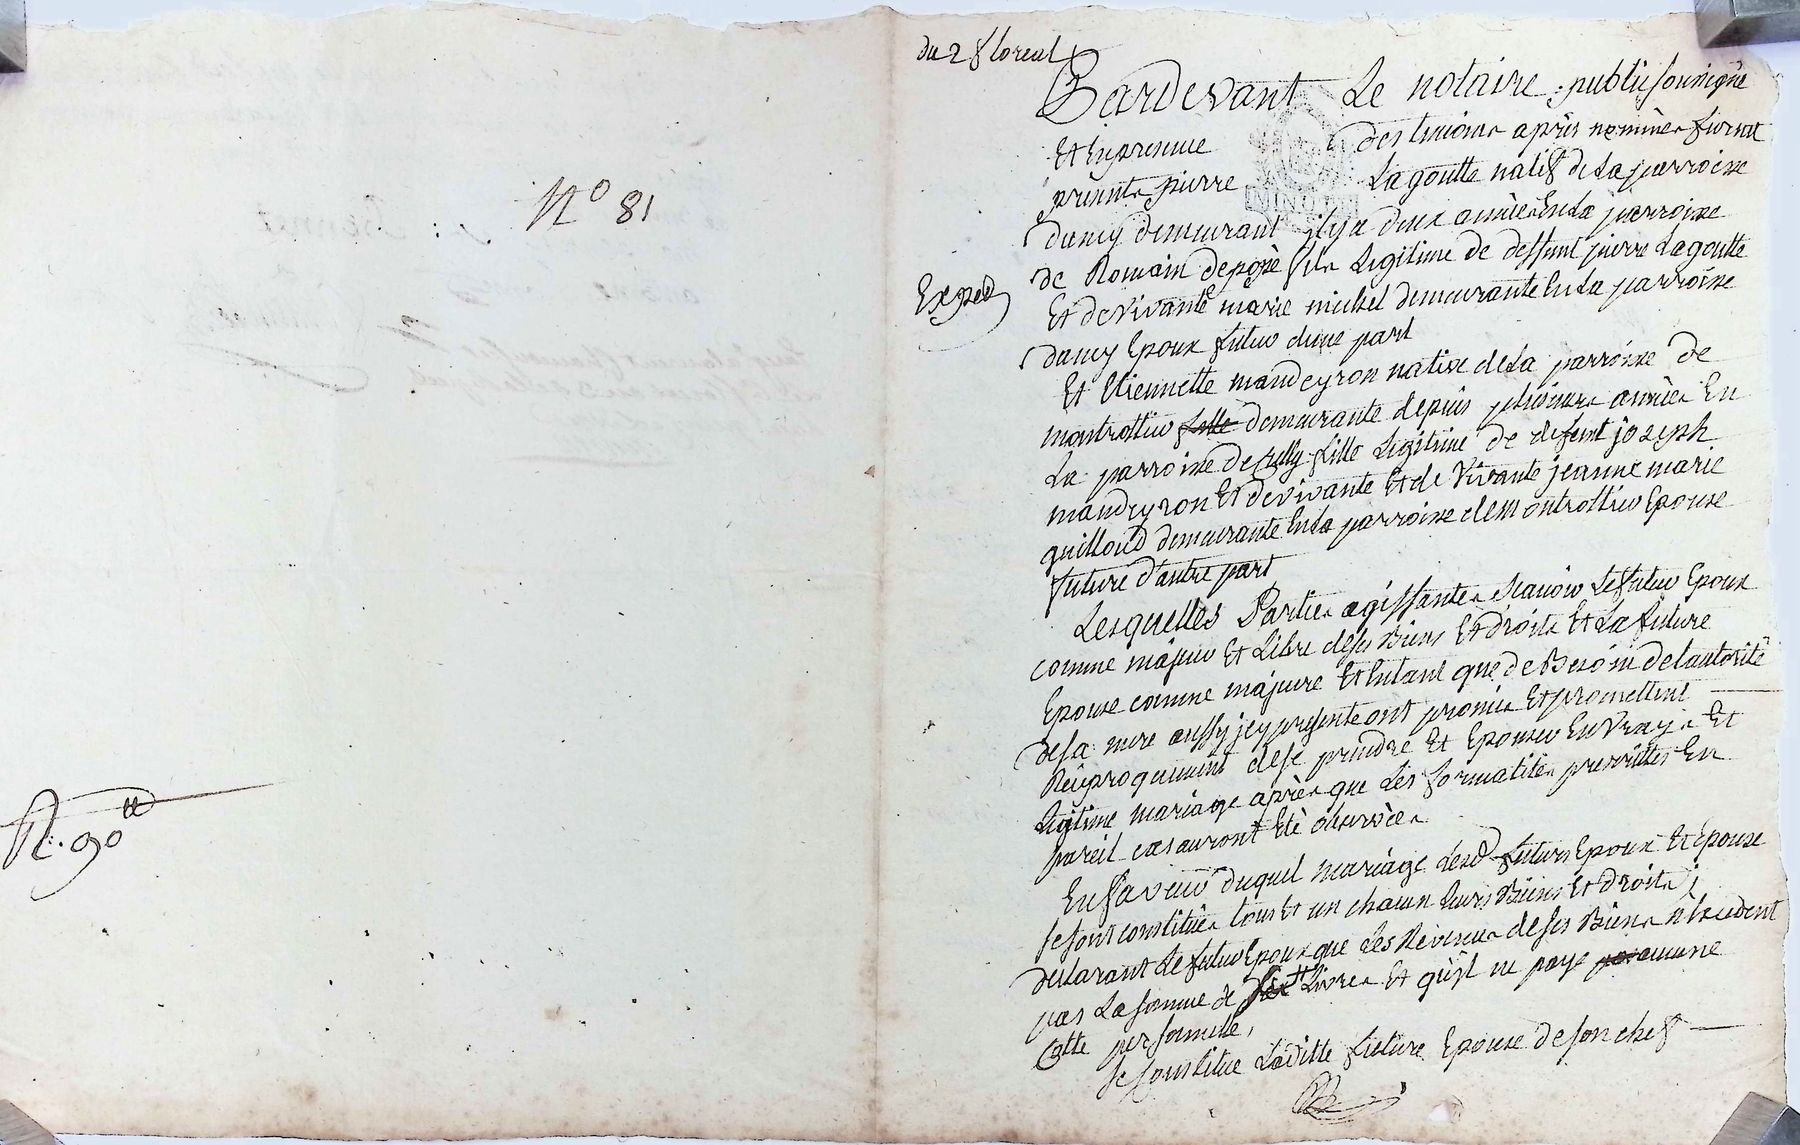 N° 81
R. 90
du 2 floreal
Pardevant Le notaire public soussigné
Et En presence des temoins après nommés furent
présents pierre Lagoutte natif de La parroisse
dancy demeurant il y a deux années En La parroisse
Exped
de Romain depopé fils Legitime de deffunt pierre Lagoutte
Et de vivante marie michel demeurante En La parroisse
dancy Epoux futur d'une part
Et Etiennette mandeyron native de La parroisse de
montrottier fille demeurante depuis plusieurs années En
La parroisse de fille Legitime de defent joseph
mandeyron Et de vivante Et de vivante jeanne marie
guilloud demeurante En La parroisse de montrottier Epouse
future d'autre part
Lesquelles Parties agissantes scavoir Le futur Epoux
comme majeur Et Libre de ses Biens Et droits Et La future
Epouse comme majeure Et En tant que de Besoin de l'autorité
de sa mere aussy jcy presente ont promis Et promettent
Reciproquement de se prendre Et Epouser En vrays Et
Legitime mariage après que Les formalités prescrittes En
pareil cas auront été observées
En faveur duquel mariage Lesd futurs Epoux Et Epouse
se sont constitués tous Et un chacun Leurs Biens Et droits ;
declarant Le futur Epoux que Les Revenus de ses Biens n'Excedent
pas La somme de Livres Et qu'il ne paye pas aucune
Cotte personnelle,
se constitue Laditte future Epouse de son chef